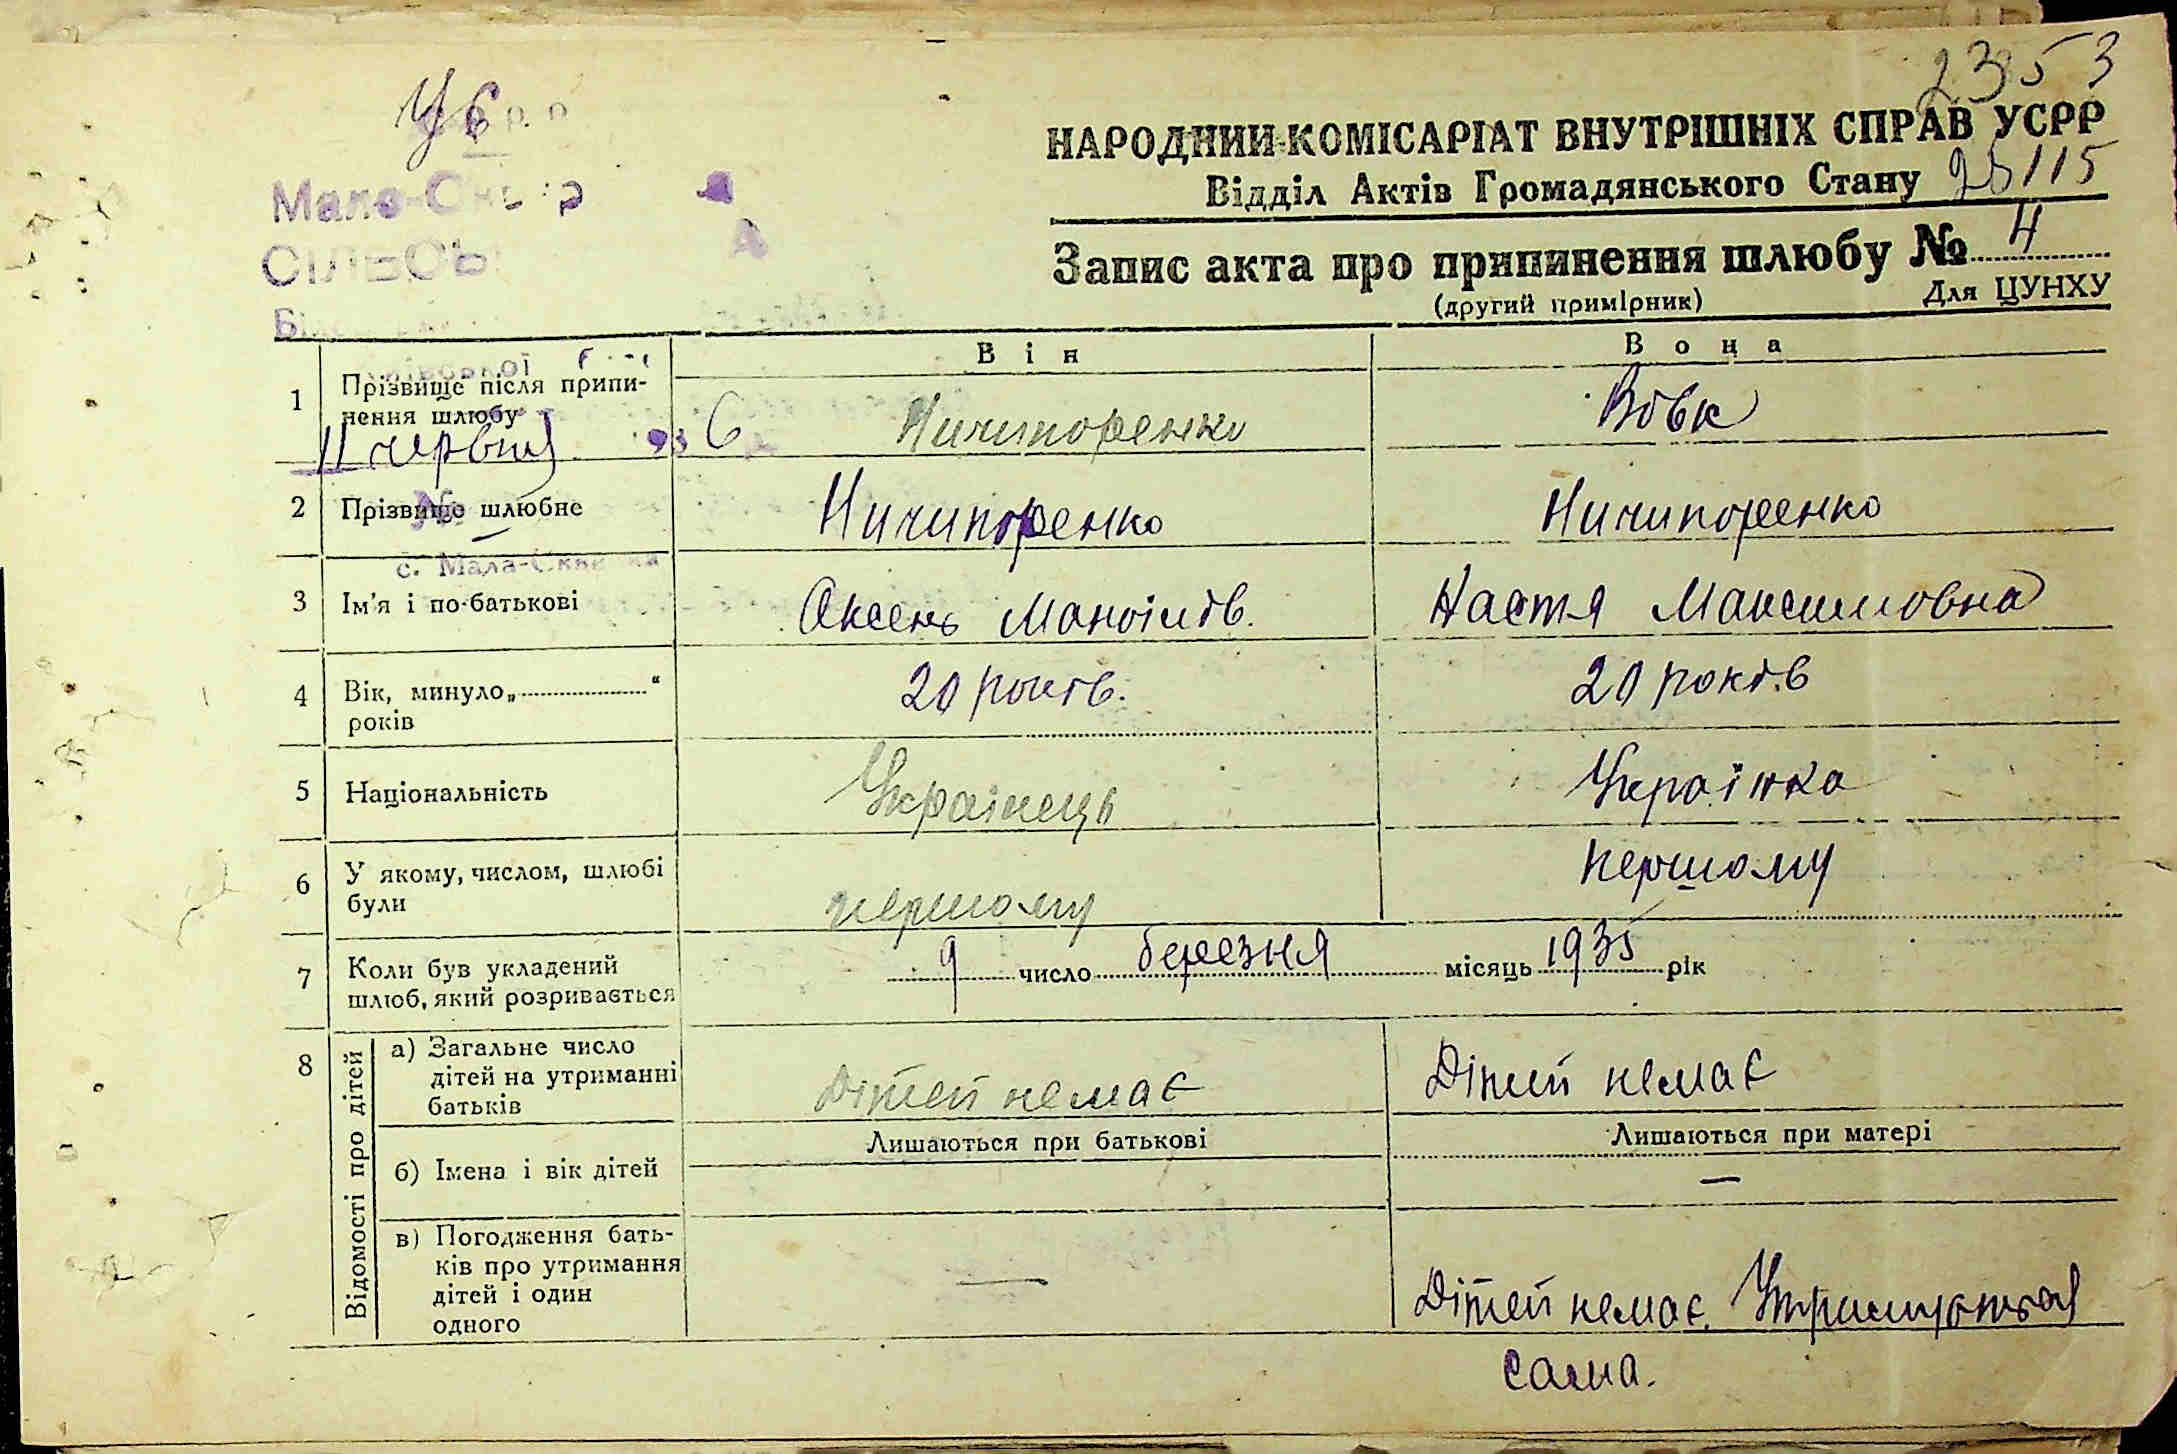 2353
НАРОДНИЙ КОМІСАРІАТ ВНУТРІШНІХ СПРАВ УСРР
Відділ Актів Громадянського Стану 25115
Запис акта про припинення шлюбу № 4
(другий примірник) Для ЦУНХУ
Мало-Сквир
СІЛЬ
с. Мала-Сквирка
11 червня 1936
Він Вона
1 Прізвище після припи-
нення шлюбу Ничипоренко Вовк
2 Прізвище шлюбне Ничипоренко Ничипоренко
3 Ім'я і по-батькові Оксень Маноілів. Настя Максимовна
4 Вік, минуло „ “
років 20 років. 20 років
5 Національність Украінець Украінка
6 У якому, числом, шлюбі
були першому першому
7 Коли був укладений
шлюб, який розривається 9 число березня місяць 1935 рік
8 Відомості про дітей
а) Загальне число
дітей на утриманні
батьків Дітей немає Дітей немає
б) Імена і вік дітей Лишаються при батькові Лишаються при матері
—
в) Погодження бать-
ків про утримання
дітей і один
одного — Дітей немає. Утримується
сама.